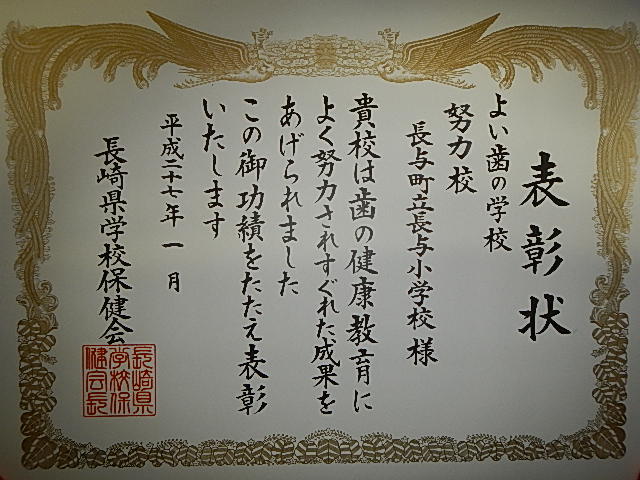 表彰状
よい歯の学校
努力校
長与町立長与小学校 様
貴校は歯の健康教育に
よく努力されすぐれた成果を
あげられました
この御功績をたたえ表彰
いたします
平成二十七年 一月
長崎県学校保健会
長崎県
学校保
健会長